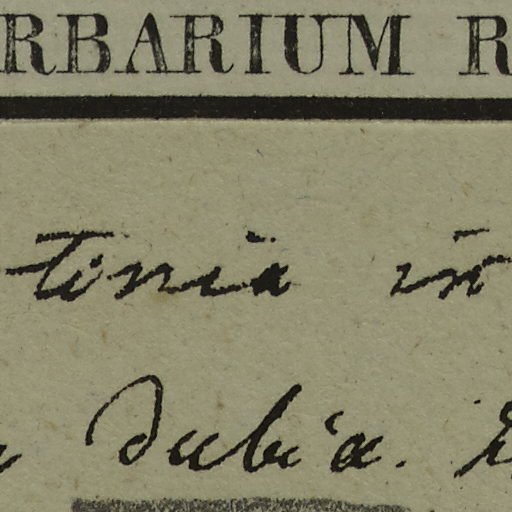 RBARIUM R
tinia in
dubia.